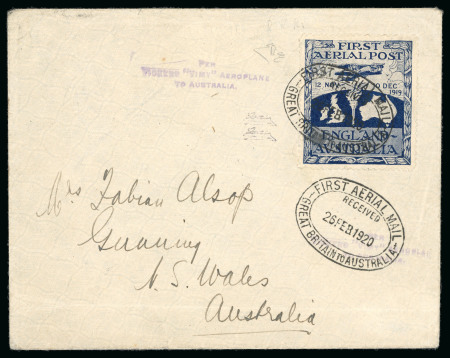 PER
VICKERS "VIMY" AEROPLANE
TO AUSTRALIA.
FIRST
AERIAL POST
12 NOV
10 DEC
1919
ENGLAND-
AUSTRALIA
FIRST AERIAL MAIL
GREAT BRITAIN TO AUSTRALIA
FIRST AERIAL MAIL
RECEIVED
26 FEB 1920
GREAT BRITAIN TO AUSTRALIA
Mrs Fabian Alsop
Gunning
N. S. Wales
Australia